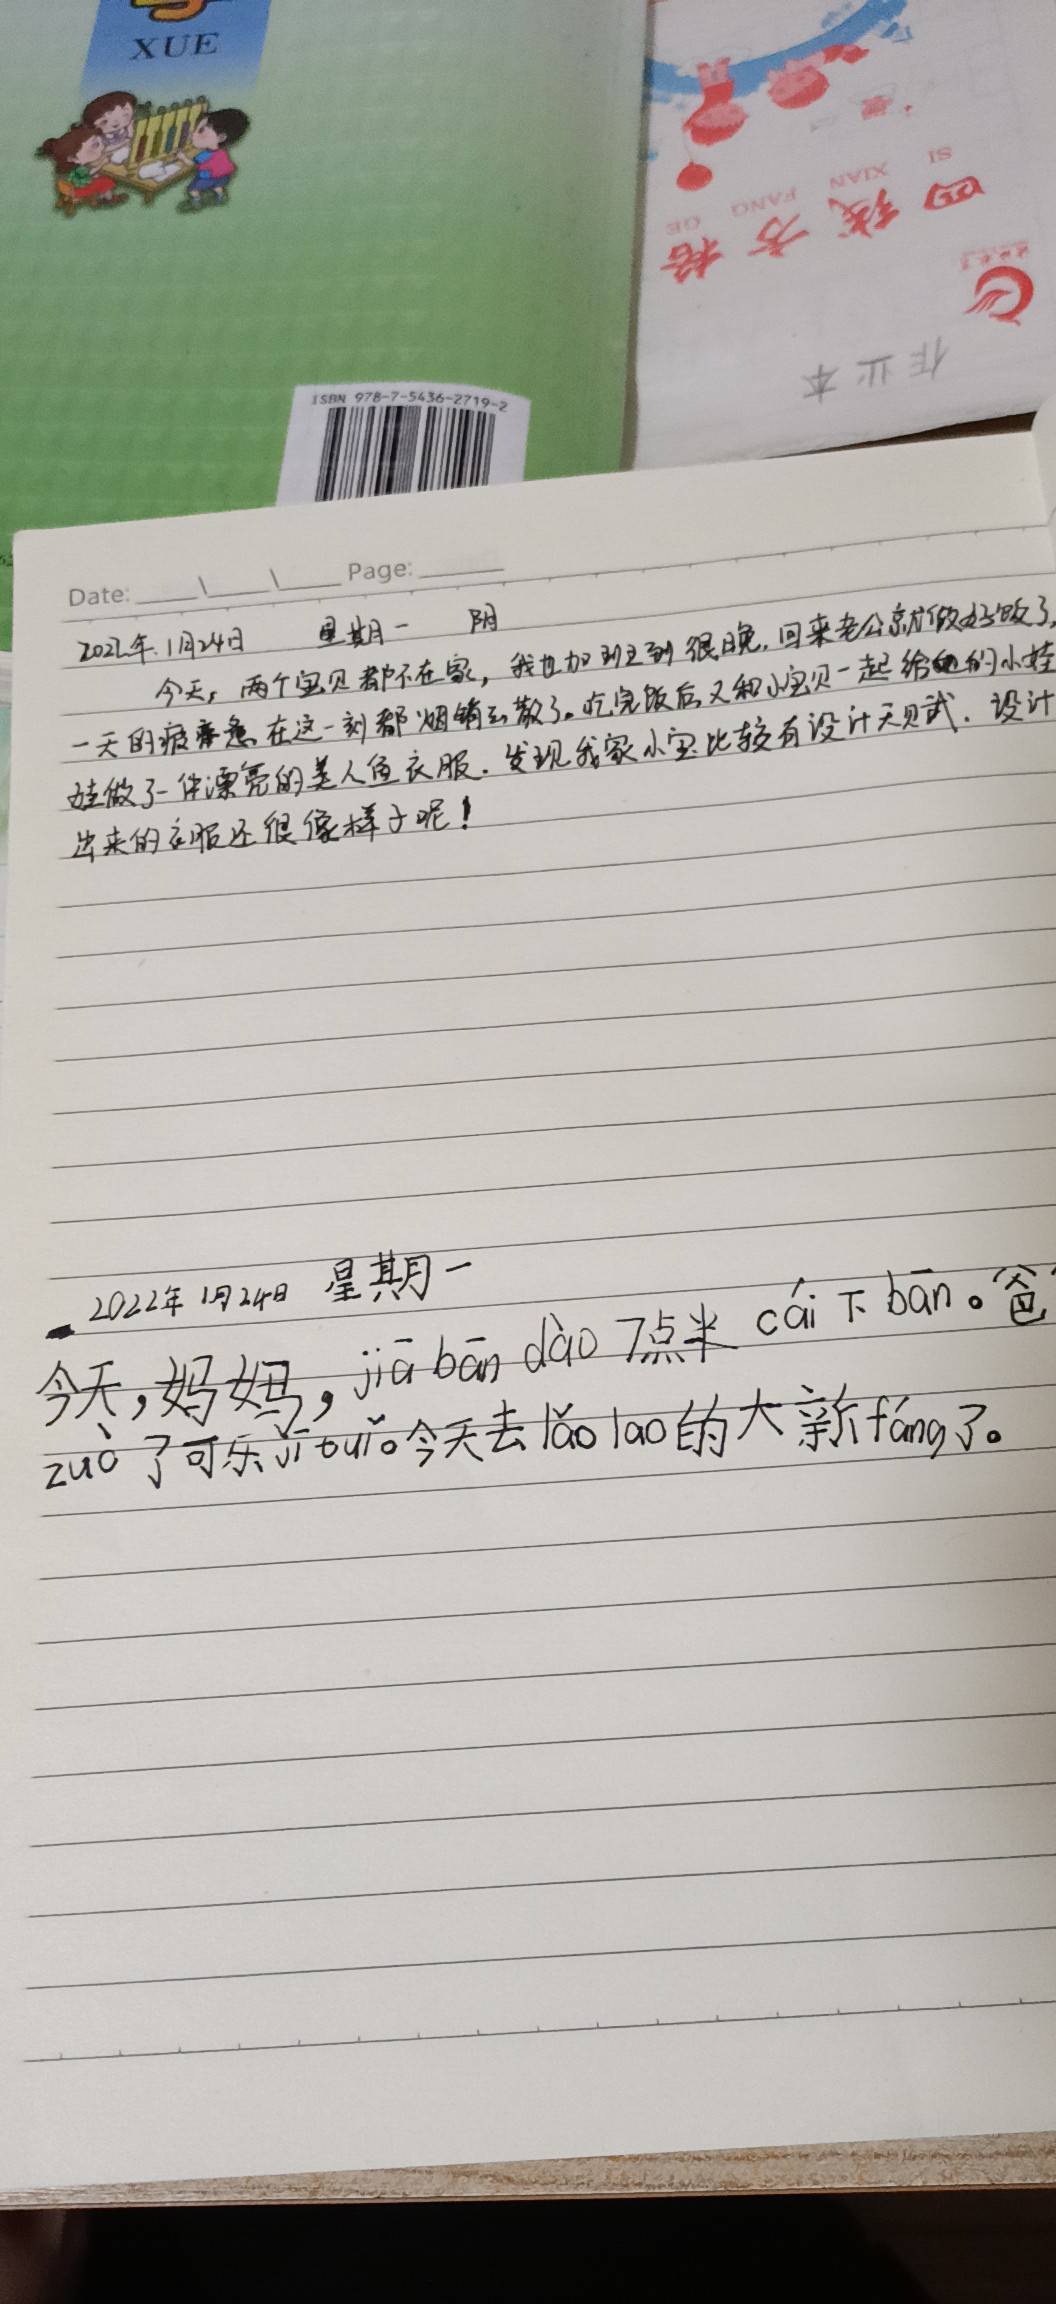 XUE
SI XIAN FANG GE
四线方格
作业本
ISBN 978-7-5436-2719-2
Date: Page:
2022年.1月24日 星期一 阴
今天,两个宝贝都不在家,我也加班到很晚.回来老公就做好饭了,
一天的疲惫在这一刻都烟销云散了。吃完饭后又和小宝贝一起给她的小娃
娃做了一件漂亮的美人鱼衣服.发现我家小宝比较有设计天贝武.设计
出来的衣服还很像样子呢!
2022年1月24日 星期一
今天,妈妈,jiā bān dào 7点半 cái 下 bān。爸
zuò 了可乐 jī tuǐ。今天去 lǎo lao 的大新 fáng 了。